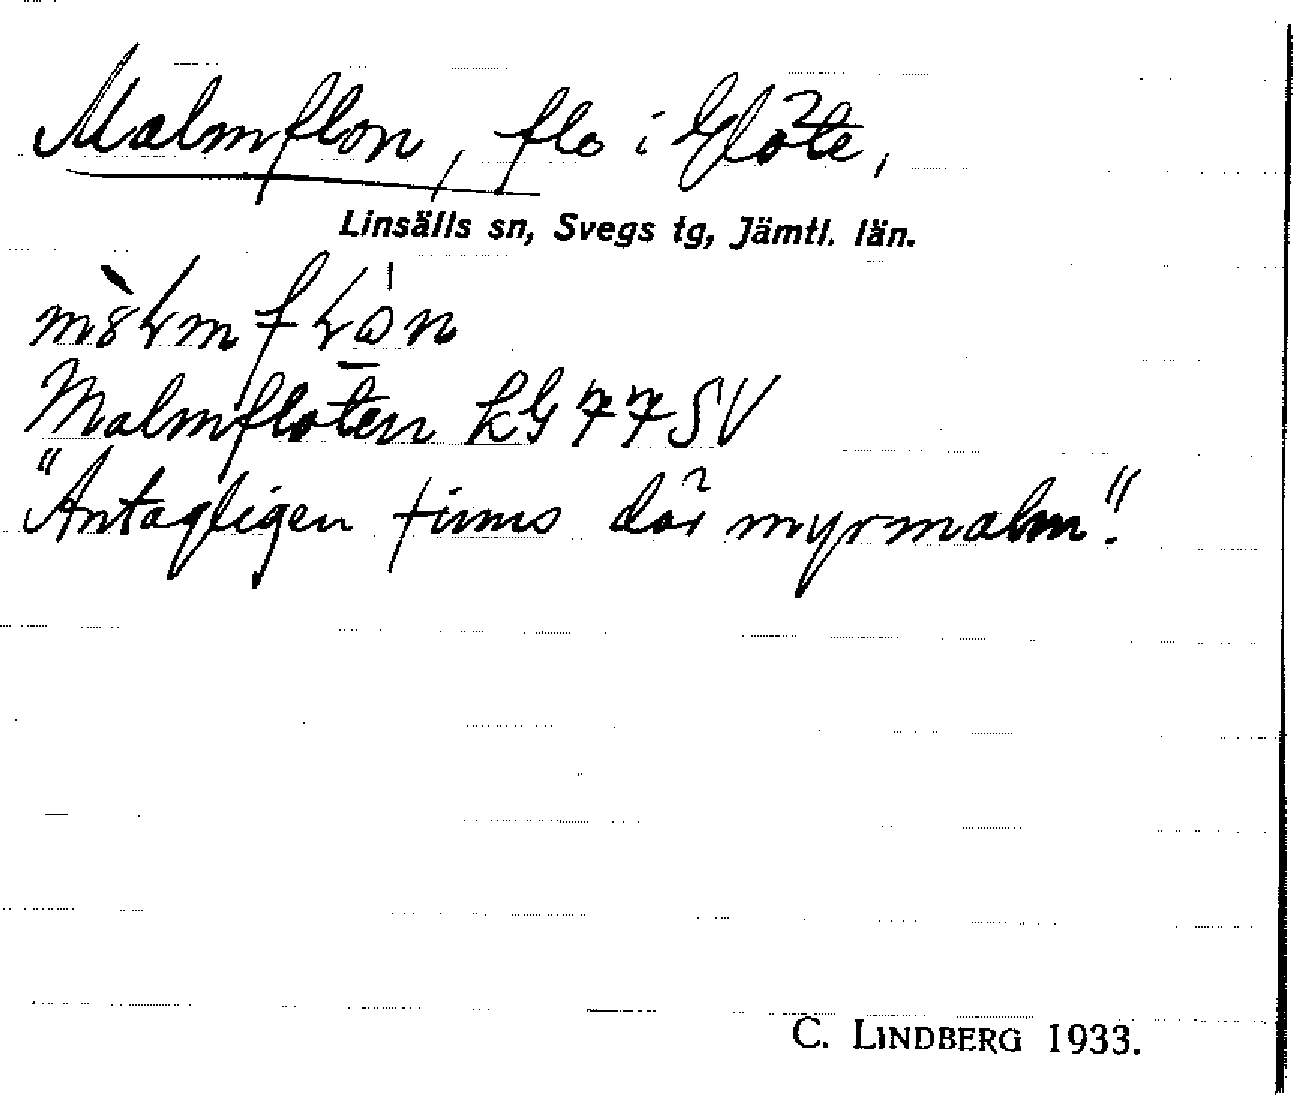 Malmflon, flo i Glöte,
Linsälls sn, Svegs tg, Jämtl. län.
Malmfloten LG 77 SV
"Antagligen finns där myrmalm".
C. LINDBERG 1933.